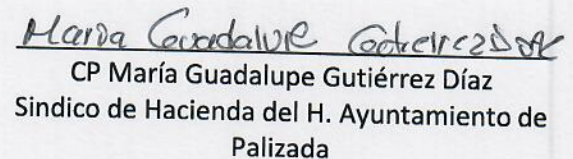 Maria Guadalupe Gutierrez Diaz
CP María Guadalupe Gutiérrez Díaz
Sindico de Hacienda del H. Ayuntamiento de
Palizada